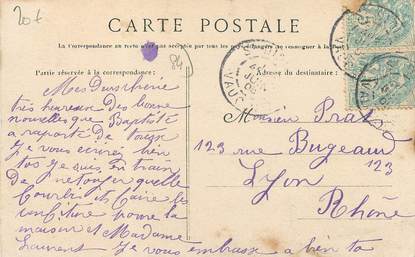 20 t
CARTE POSTALE
La correspondance au recto n'est pas acceptée par tous les pays étrangers. se renseigner à la Poste
Partie réservée à la correspondance:
Adresse du destinataire:
84
Mes Deux chérie
très heureuse Des bonne
nouvelles que Baptiste
a raporté de vous
Je vous écrirés bien
tos Je suis en train
De netoyer quelle
Courbis et Caire les
confiture pour la
maison et Madame
Laurent Je vous embrasse a bien to
Monsieur Prat
123 rue Bugeaud
123
Lyon
Rhône